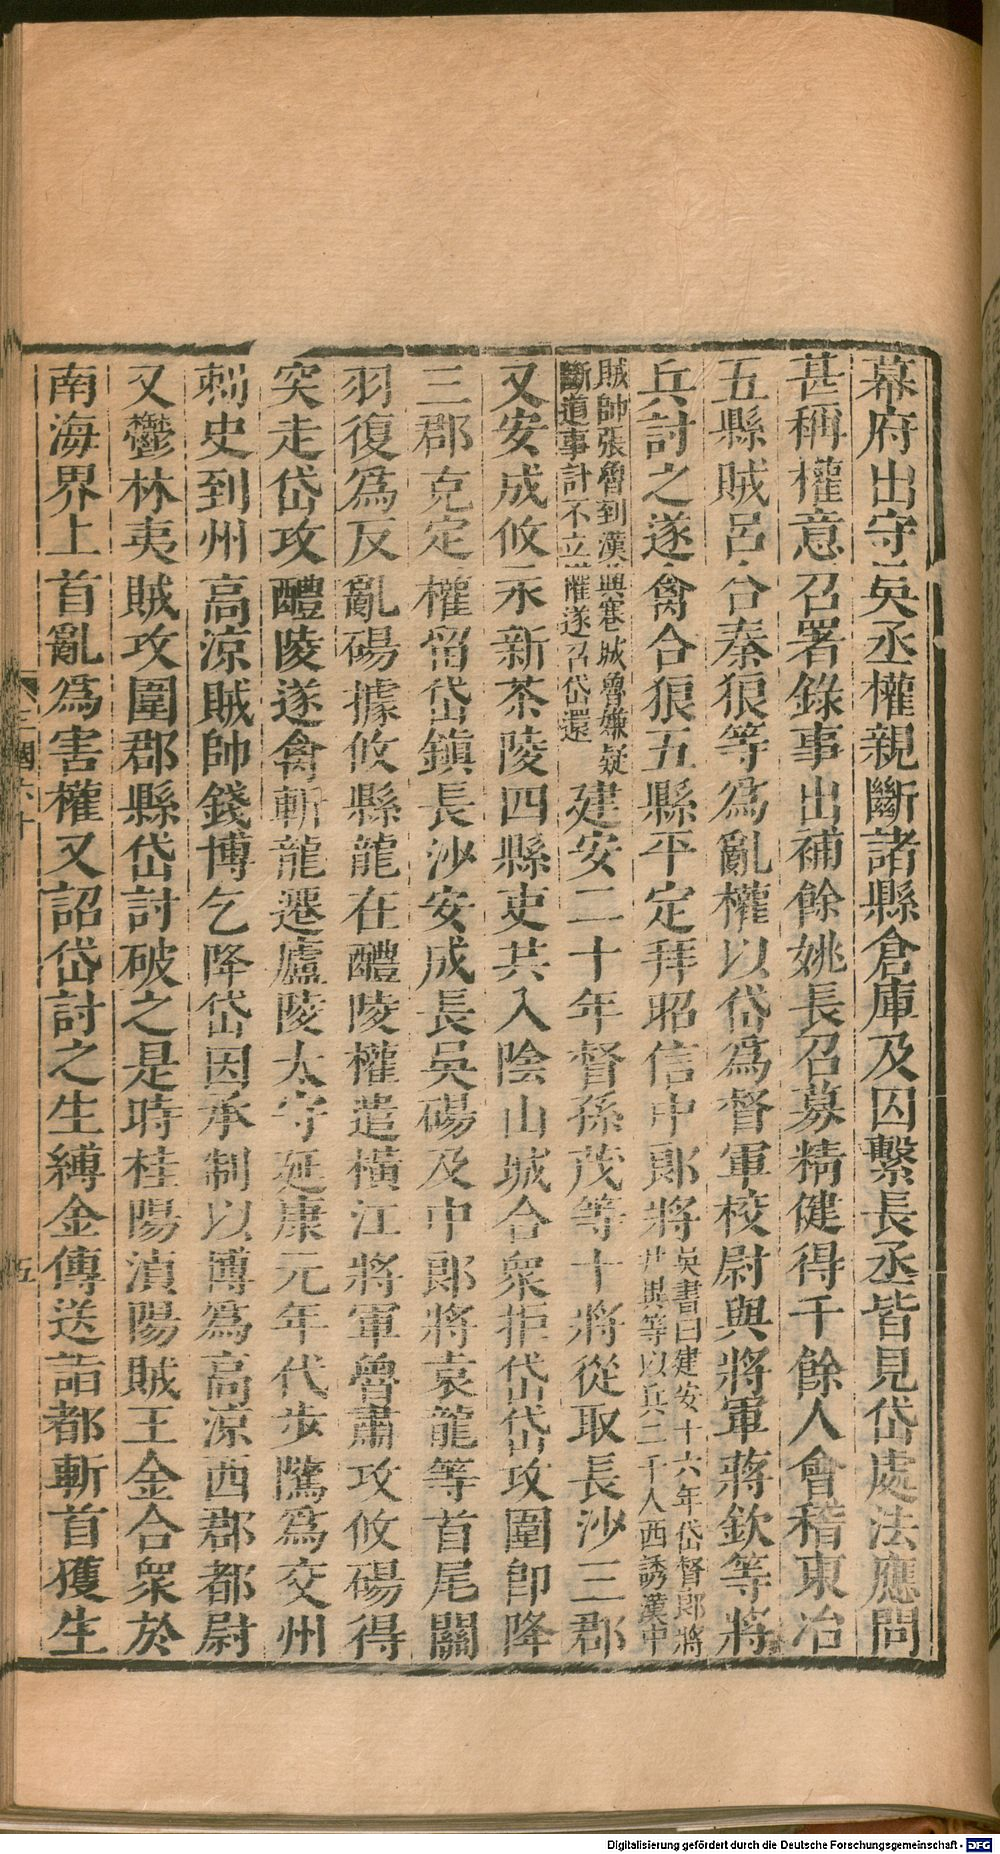 幕府出守吳丞權親斷諸縣倉庫及囚繫長丞皆見岱處法應問
甚稱權意召署錄事出補餘姚長召募精健得千餘人會稽東冶
五縣賊呂合秦狼等為亂權以岱為督軍校尉與將軍蔣欽等將
兵討之遂禽合狼五縣平定拜昭信中郎將
吳書曰建安十六年岱督郎將
尹異等以兵二千人西誘漢中
賊帥張魯到漢興寋城魯嫌疑
斷道事計不立權遂召岱還
建安二十年督孫茂等十將從取長沙三郡
又安成攸永新茶陵四縣吏共入陰山城合衆拒岱岱攻圍卽降
三郡克定權留岱鎮長沙安成長吳碭及中郎將袁龍等首尾關
羽復爲反亂碭據攸縣龍在醴陵權遣橫江將軍魯肅攻攸碭得
突走岱攻醴陵遂禽斬龍遷廬陵太守延康元年代步隲爲交州
刺史到州高涼賊帥錢博乞降岱因承制以博爲高涼西郡都尉
又鬱林夷賊攻圍郡縣岱討破之是時桂陽湞陽賊王金合衆於
南海界上首亂爲害權又詔岱討之生縛金傳送詣都斬首獲生
三國六十
五
Digitalisierung gefördert durch die Deutsche Forschungsgemeinschaft - DFG